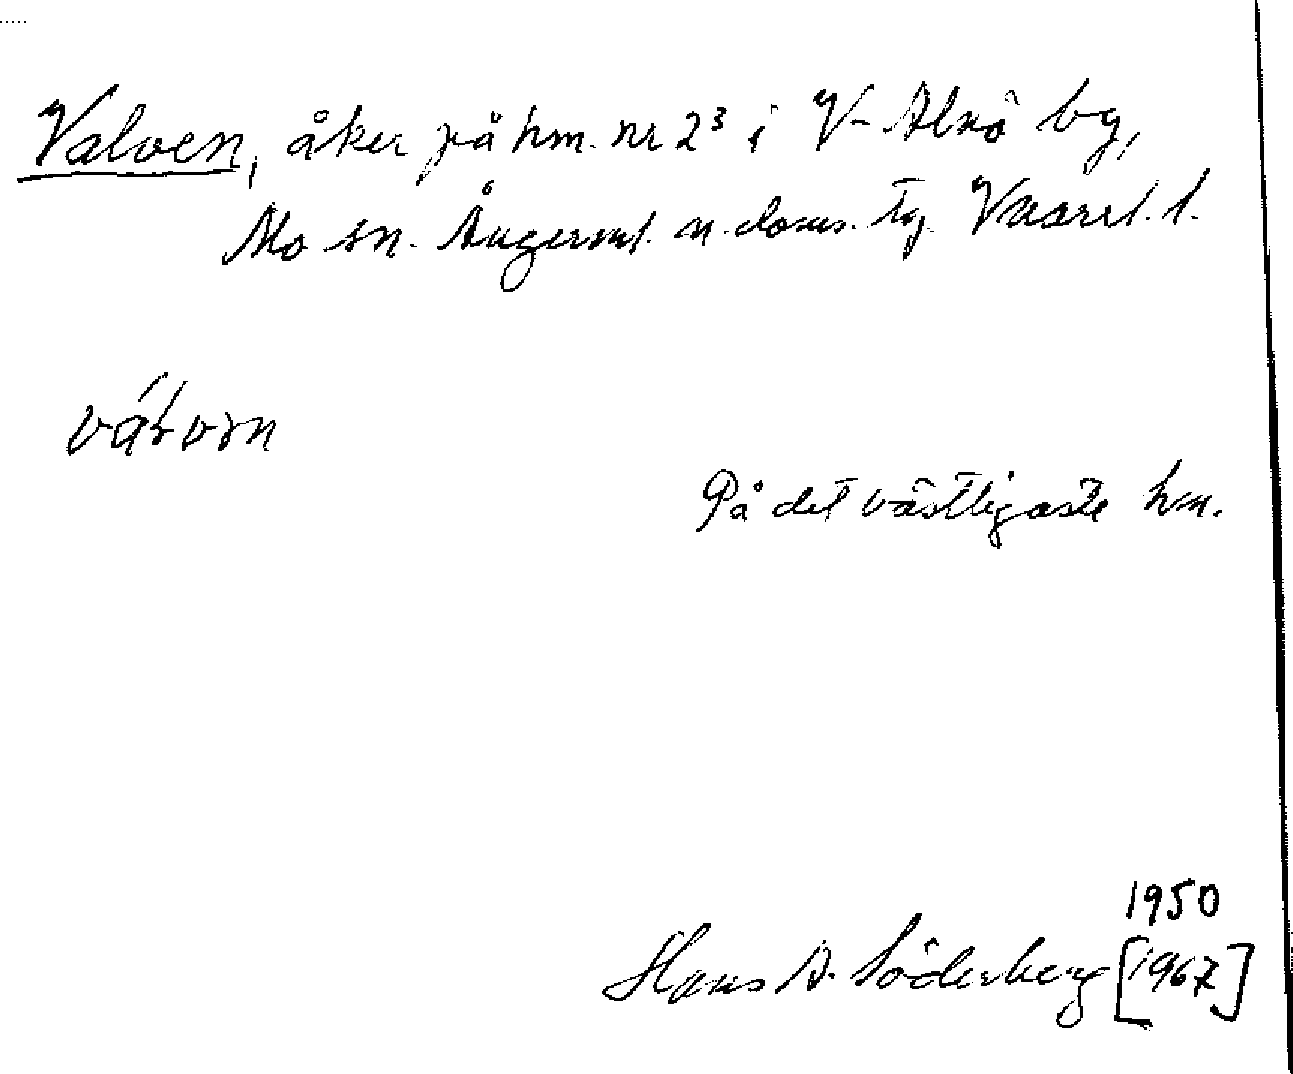 Valven, åker på hm. nr 2³ i V-Alnö by,
Mo sn. Ångerml. n. doms. tg. Västernl. l.
På det västligaste hm.
1950
Hans A. Söderberg [1967]